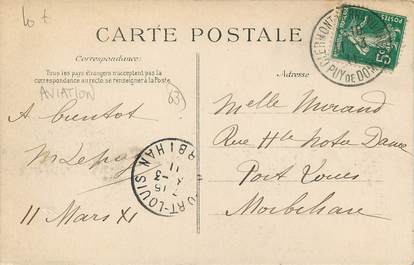 CARTE POSTALE
Correspondance:
Tous les pays étrangers n'acceptent pas la
correspondance au recto (se renseigner à la Poste.
AVIATION
63
A bientot
11 Mars XI
Adresse
Melle Morand
Rue Hte Notre Dame
Port Louis
Morbihan
POSTES
5c
CLERMONT-
PUY DE DÔME
PORT-LOUIS
MORBIHAN
7 15
11 -3
11